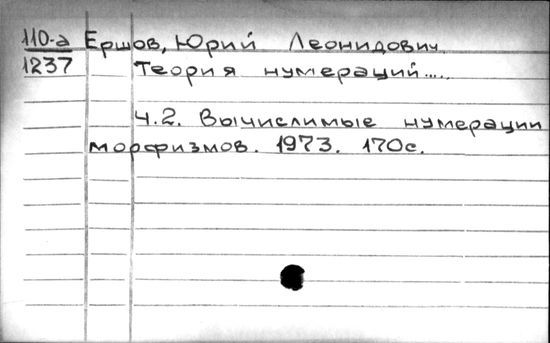 110-а Ершов, Юрий Леонидович
1237 Теория нумераций.....
Ч.2. Вычислимые нумерации
морфизмов. 1973. 170с.